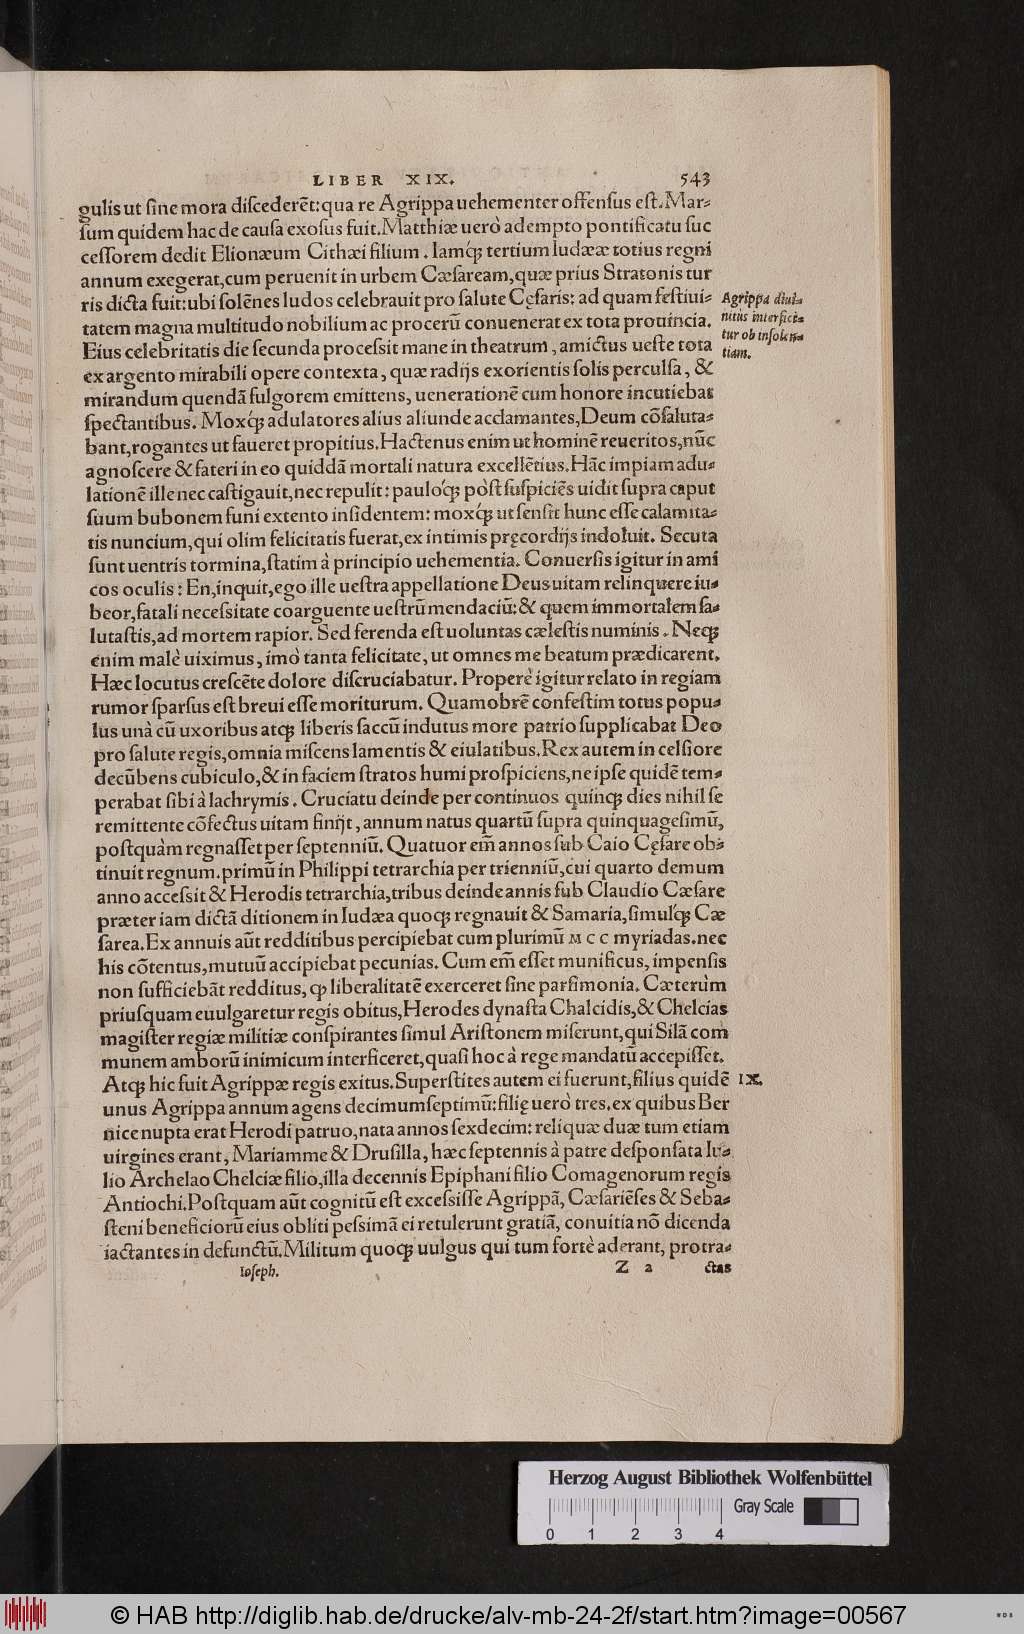 LIBER XIX. 543
gulis ut ſine mora diſcederēt: qua re Agrippa uehementer offenſus eſt. Mar-
ſum quidem hac de cauſa exoſus fuit. Matthiæ uerò adempto pontificatu ſuc
ceſſorem dedit Elionæum Cithæi filium. Iamq́; tertium Iudææ totius regni
annum exegerat, cum peruenit in urbem Cæſaream, quæ prius Stratonis tur
ris dicta fuit: ubi ſolēnes ludos celebrauit pro ſalute Cęſaris: ad quam feſtiui-
tatem magna multitudo nobilium ac procerū conuenerat ex tota prouincia.
Eius celebritatis die ſecunda proceſsit mane in theatrum, amictus ueſte tota
ex argento mirabili opere contexta, quæ radijs exorientis ſolis perculſa, &
mirandum quendā fulgorem emittens, uenerationē cum honore incutiebat
ſpectantibus. Moxq́; adulatores alius aliunde acclamantes, Deum cōſaluta-
bant, rogantes ut faueret propitius. Hactenus enim ut hominē reueritos, nūc
agnoſcere & fateri in eo quiddā mortali natura excellētius. Hāc impiam adu-
lationē ille nec caſtigauit, nec repulit: pauloq́; pòſt ſuſpiciēs uidit ſupra caput
ſuum bubonem funi extento inſidentem: moxq́; ut ſenſit hunc eſſe calamita-
tis nuncium, qui olim felicitatis fuerat, ex intimis pręcordijs indoluit. Secuta
ſunt uentris tormina, ſtatim à principio uehementia. Conuerſis igitur in ami
cos oculis: En, inquit, ego ille ueſtra appellatione Deus uitam relinquere iu-
beor, fatali neceſsitate coarguente ueſtrū mendaciū: & quem immortalem ſa-
lutaſtis, ad mortem rapior. Sed ferenda eſt uoluntas cæleſtis numinis. Neq;
enim malè uiximus, imò tanta felicitate, ut omnes me beatum prædicarent.
Hæc locutus creſcēte dolore diſcruciabatur. Properè igitur relato in regiam
rumor ſparſus eſt breui eſſe moriturum. Quamobrē confeſtim totus popu-
lus unà cū uxoribus atq; liberis ſaccū indutus more patrio ſupplicabat Deo
pro ſalute regis, omnia miſcens lamentis & eiulatibus. Rex autem in celſiore
decūbens cubiculo, & in faciem ſtratos humi proſpiciens, ne ipſe quidē tem-
perabat ſibi à lachrymis. Cruciatu deinde per continuos quinq; dies nihil ſe
remittente cōfectus uitam finijt, annum natus quartū ſupra quinquageſimū,
poſtquàm regnaſſet per ſeptenniū. Quatuor em̄ annos ſub Caio Cęſare ob-
tinuit regnum. primū in Philippi tetrarchia per trienniū, cui quarto demum
anno acceſsit & Herodis tetrarchia, tribus deinde annis ſub Claudio Cæſare
præter iam dictā ditionem in Iudæa quoq; regnauit & Samaria, ſimulq́; Cæ
ſarea. Ex annuis aūt redditibus percipiebat cum plurimū MCC myriadas. nec
his cōtentus, mutuū accipiebat pecunias. Cum em̄ eſſet munificus, impenſis
non ſufficiebāt redditus, ꝙ liberalitatē exerceret ſine parſimonia. Cæterùm
priuſquam euulgaretur regis obitus, Herodes dynaſta Chalcidis, & Chelcias
magiſter regiæ militiæ conſpirantes ſimul Ariſtonem miſerunt, qui Silā com
munem amborū inimicum interficeret, quaſi hoc à rege mandatū accepiſſet.
Atq; hic fuit Agrippæ regis exitus. Superſtites autem ei fuerunt, filius quidē
unus Agrippa annum agens decimumſeptimū: filię uerò tres. ex quibus Ber
nice nupta erat Herodi patruo, nata annos ſexdecim: reliquæ duæ tum etiam
uirgines erant, Mariamme & Druſilla, hæc ſeptennis à patre deſponſata Iu-
lio Archelao Chelciæ filio, illa decennis Epiphani filio Comagenorum regis
Antiochi. Poſtquam aūt cognitū eſt exceſsiſſe Agrippā, Cæſariēſes & Seba-
ſteni beneficiorū eius obliti peſsimā ei retulerunt gratiā, conuitia nō dicenda
iactantes in defunctū. Militum quoq; uulgus qui tum fortè aderant, protra-
Ioſeph. Z 2 ctas
Agrippa diui-
nitus interfici-
tur ob inſolen-
tiam.
IX.
Herzog August Bibliothek Wolfenbüttel
Gray Scale
0 1 2 3 4
© HAB http://diglib.hab.de/drucke/alv-mb-24-2f/start.htm?image=00567